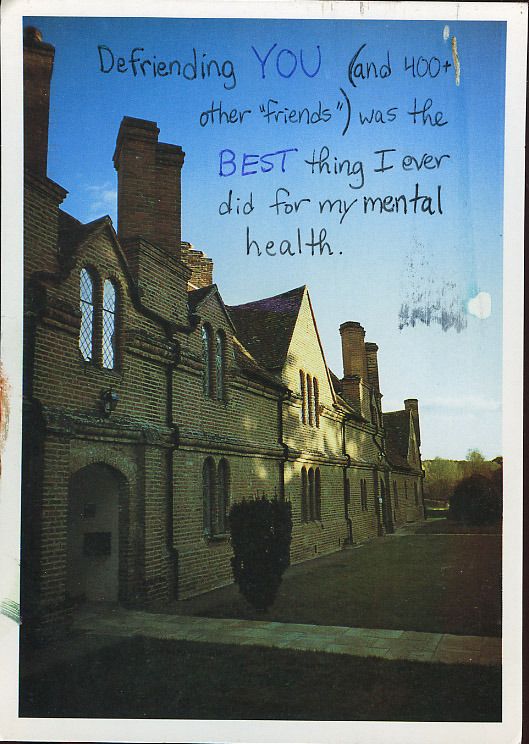 Defriending YOU (and 400+
other "friends") was the
BEST thing I ever
did for my mental
health.